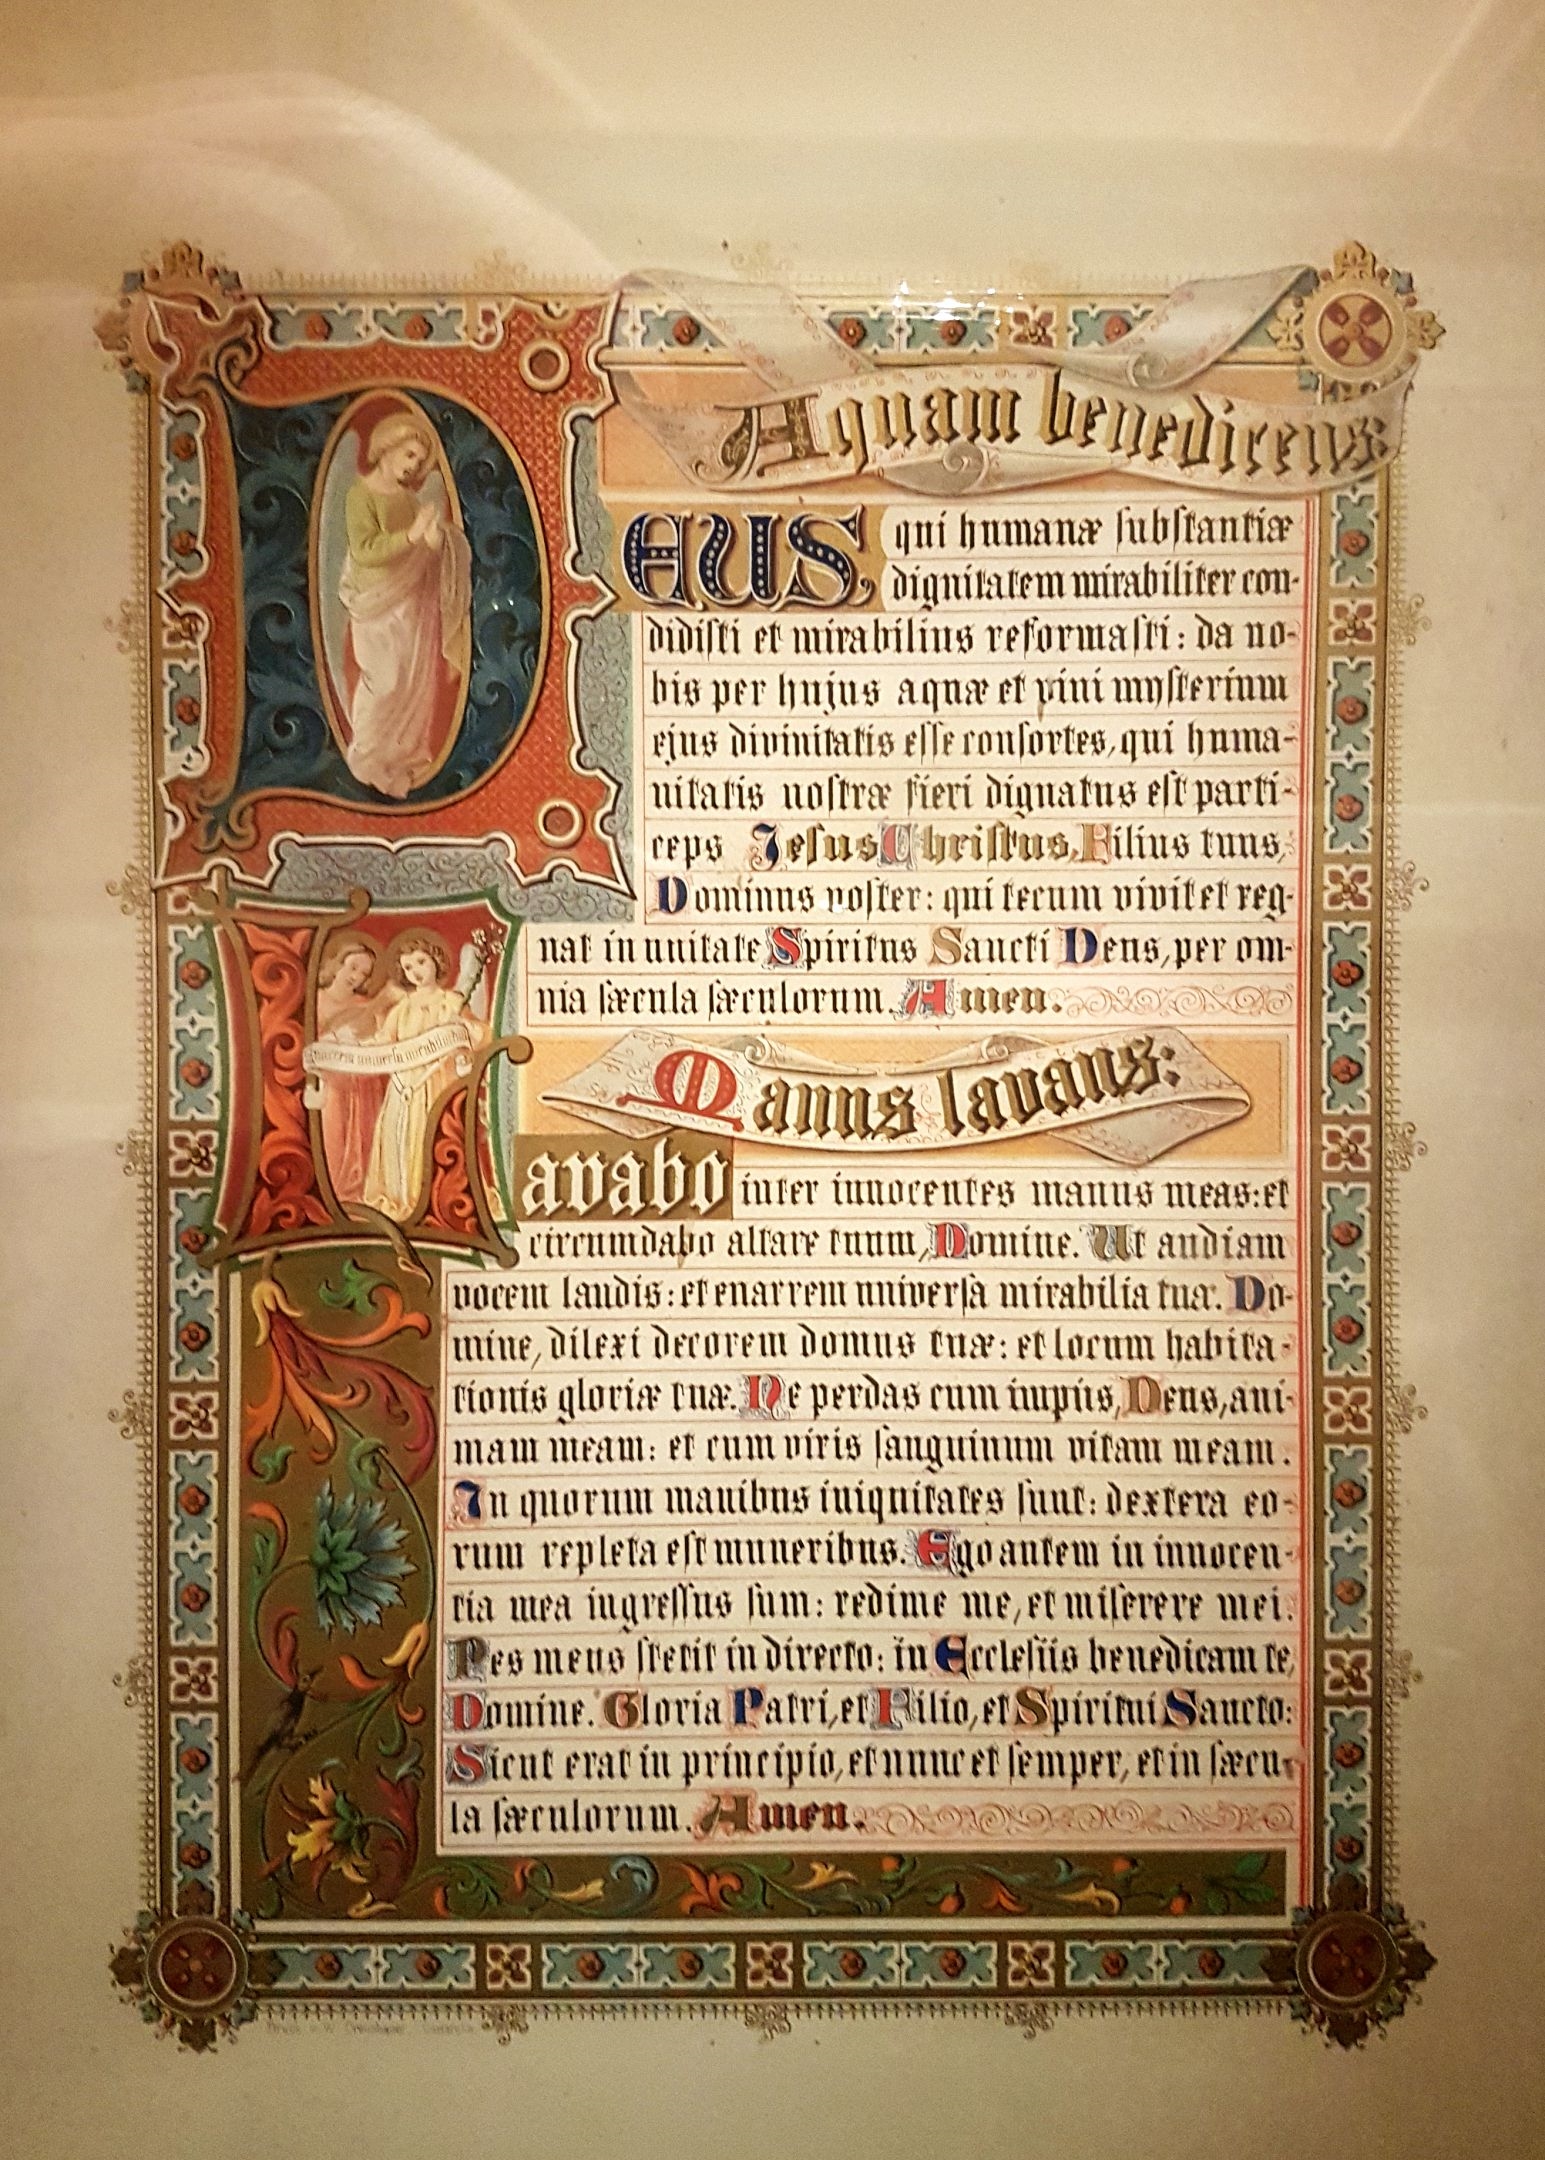 Aquam benedicens
DEUS, qui humanæ ſubſtantiæ
dignitatem mirabiliter con-
didiſti et mirabilius reformaſti: da no-
bis per hujus aquæ et vini myſterium
ejus divinitatis eſſe conſortes, qui huma-
nitatis noſtræ fieri dignatus eſt parti-
ceps Jeſus Chriſtus, Filius tuus,
Dominus noſter: qui tecum vivit et reg-
nat in unitate Spiritus Sancti Deus, per om-
nia ſæcula ſæculorum. Amen.
Manus lavans:
Lavabo inter innocentes manus meas: et
circumdabo altare tuum, Domine. Ut audiam
vocem laudis: et enarrem univerſa mirabilia tua. Do-
mine, dilexi decorem domus tuæ: et locum habita-
tionis gloriæ tuæ. Ne perdas cum impiis, Deus, ani-
mam meam: et cum viris ſanguinum vitam meam.
In quorum manibus iniquitates ſunt: dextera eo-
rum repleta eſt muneribus. Ego autem in innocen-
tia mea ingreſſus ſum: redime me, et miſerere mei.
Pes meus ſtetit in directo: in Eccleſiis benedicam te,
Domine. Gloria Patri, et Filio, et Spiritui Sancto:
Sicut erat in principio, et nunc et ſemper, et in ſæcu-
la ſæculorum. Amen.